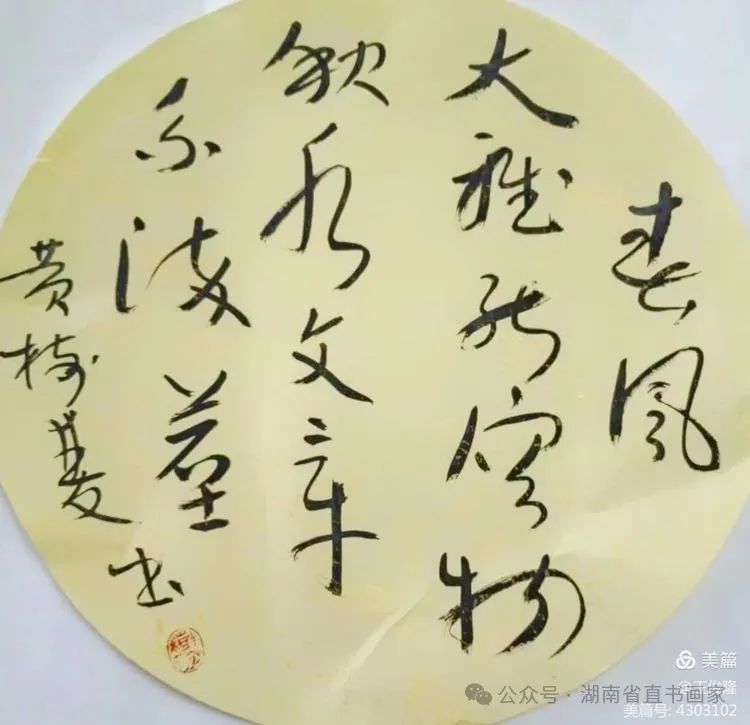 春风
大雅能容物
秋水文章
不染塵
黄树 书
美篇
公众号 · 湖南省直书画家
美篇号: 4303102